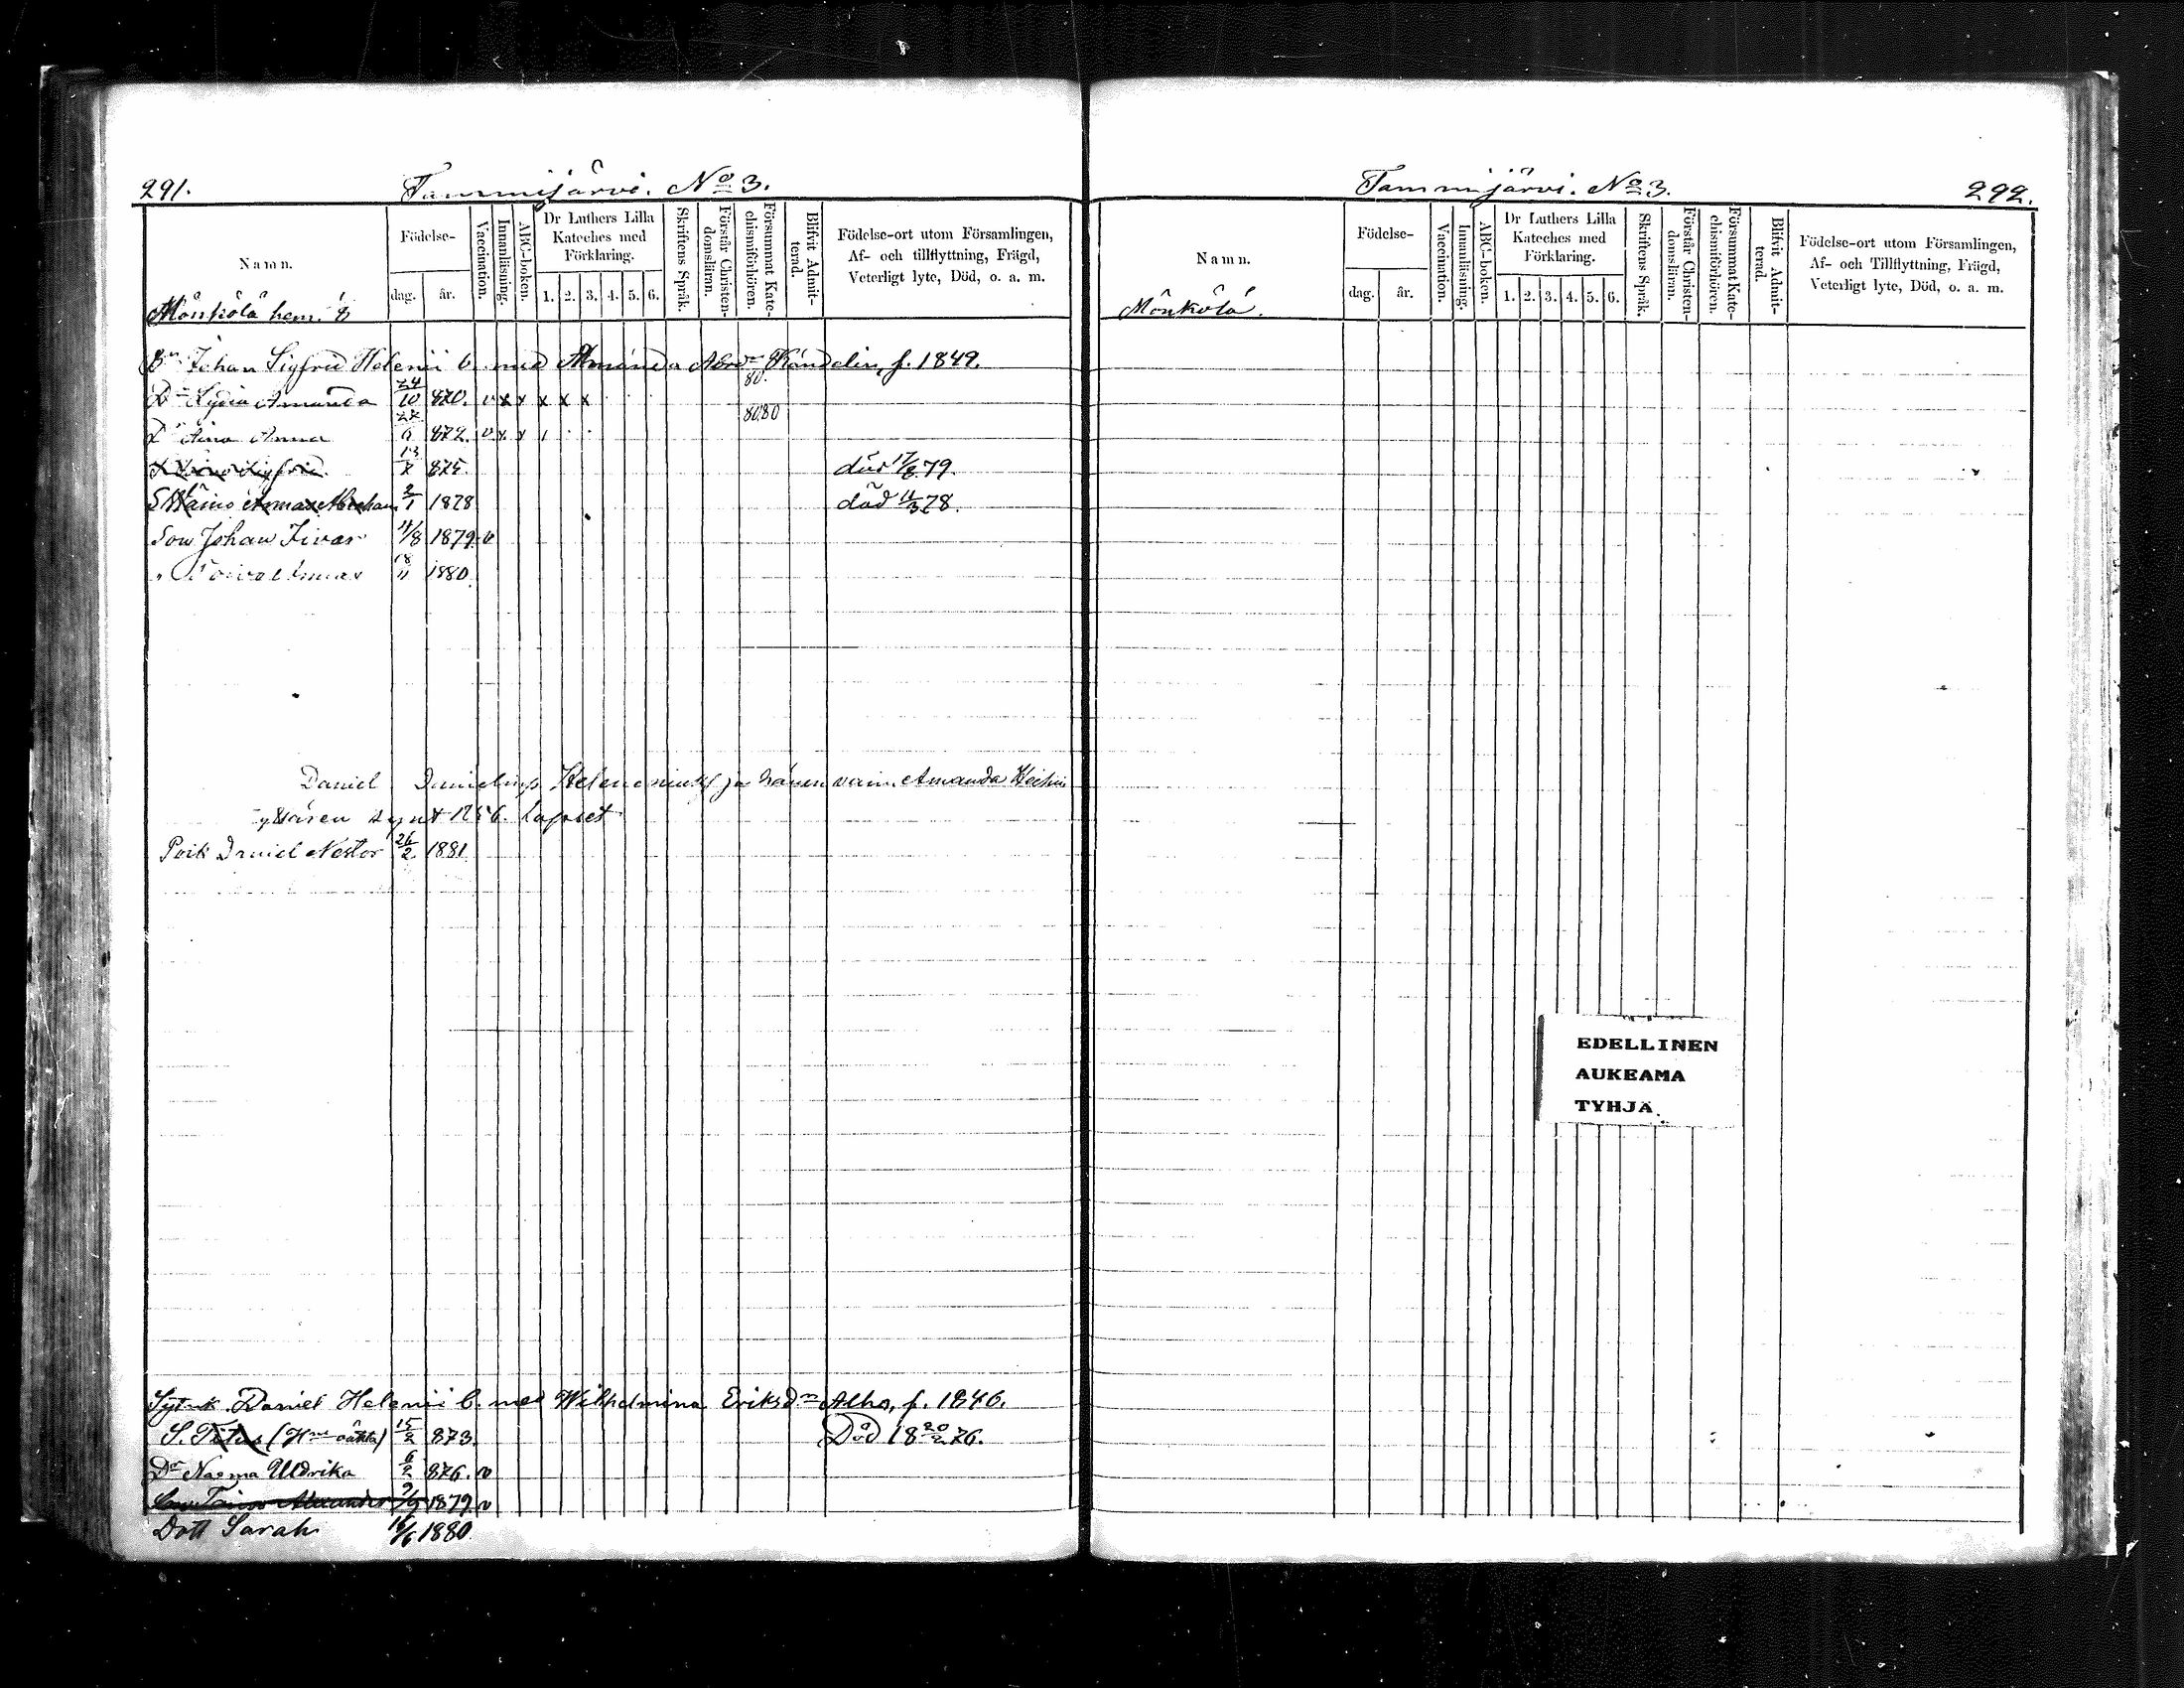 291.
Tammijärvi. No 3.
Namn.
Födelse-
dag.
år.
Vaccination.
Innanläsning.
ABC-boken.
Dr Luthers Lilla Kateches med Förklaring.
1. 2. 3. 4. 5. 6.
Skriftens Språk.
Förstår Christendomsläran.
Försummat Katechismiförhören.
Blifvit Admitterad.
Födelse-ort utom Församlingen,
Af- och tillflyttning, Frägd,
Veterligt lyte, Död, o. a. m.
Mönkölä hem.
Johan Sigfrid Helenii b. med Amanda Rändelin, f. 1849.
80.
Dr Lydia Amanda 24/10 870. v x x x x x
80 80
Dr Aina Anna 872. v x x
Sigfrid 13 875. död 17/8 79.
S. Wäinö Armas Abraham 2/1 1878 död 11/3 78.
Son Johan Iivar 11/8 1879 v
" Toivo Armas 18/11 1880.
Daniel Danielinp. Helenius ja hänen vaim. Amanda
synt 1856. Lapset
Poik Daniel Nestor 26/2 1881
Daniel Helenii b. med Wilhelmina Eriksdr Alho, f. 1846.
S. Titus 15/2 873. Död 18 20/2 76.
Dr Naëma Uldrika 6/2 876. v
Alexander 9/9 1879 v
Dott Sarah 16/6 1880.
Tammijärvi. No 3.
292.
Namn.
Födelse-
dag.
år.
Vaccination.
Innanläsning.
ABC-boken.
Dr Luthers Lilla Kateches med Förklaring.
1. 2. 3. 4. 5. 6.
Skriftens Språk.
Förstår Christendomsläran.
Försummat Katechismiförhören.
Blifvit Admitterad.
Födelse-ort utom Församlingen,
Af- och Tillflyttning, Frägd,
Veterligt lyte, Död, o. a. m.
Mönkölä.
EDELLINEN
AUKEAMA
TYHJÄ.